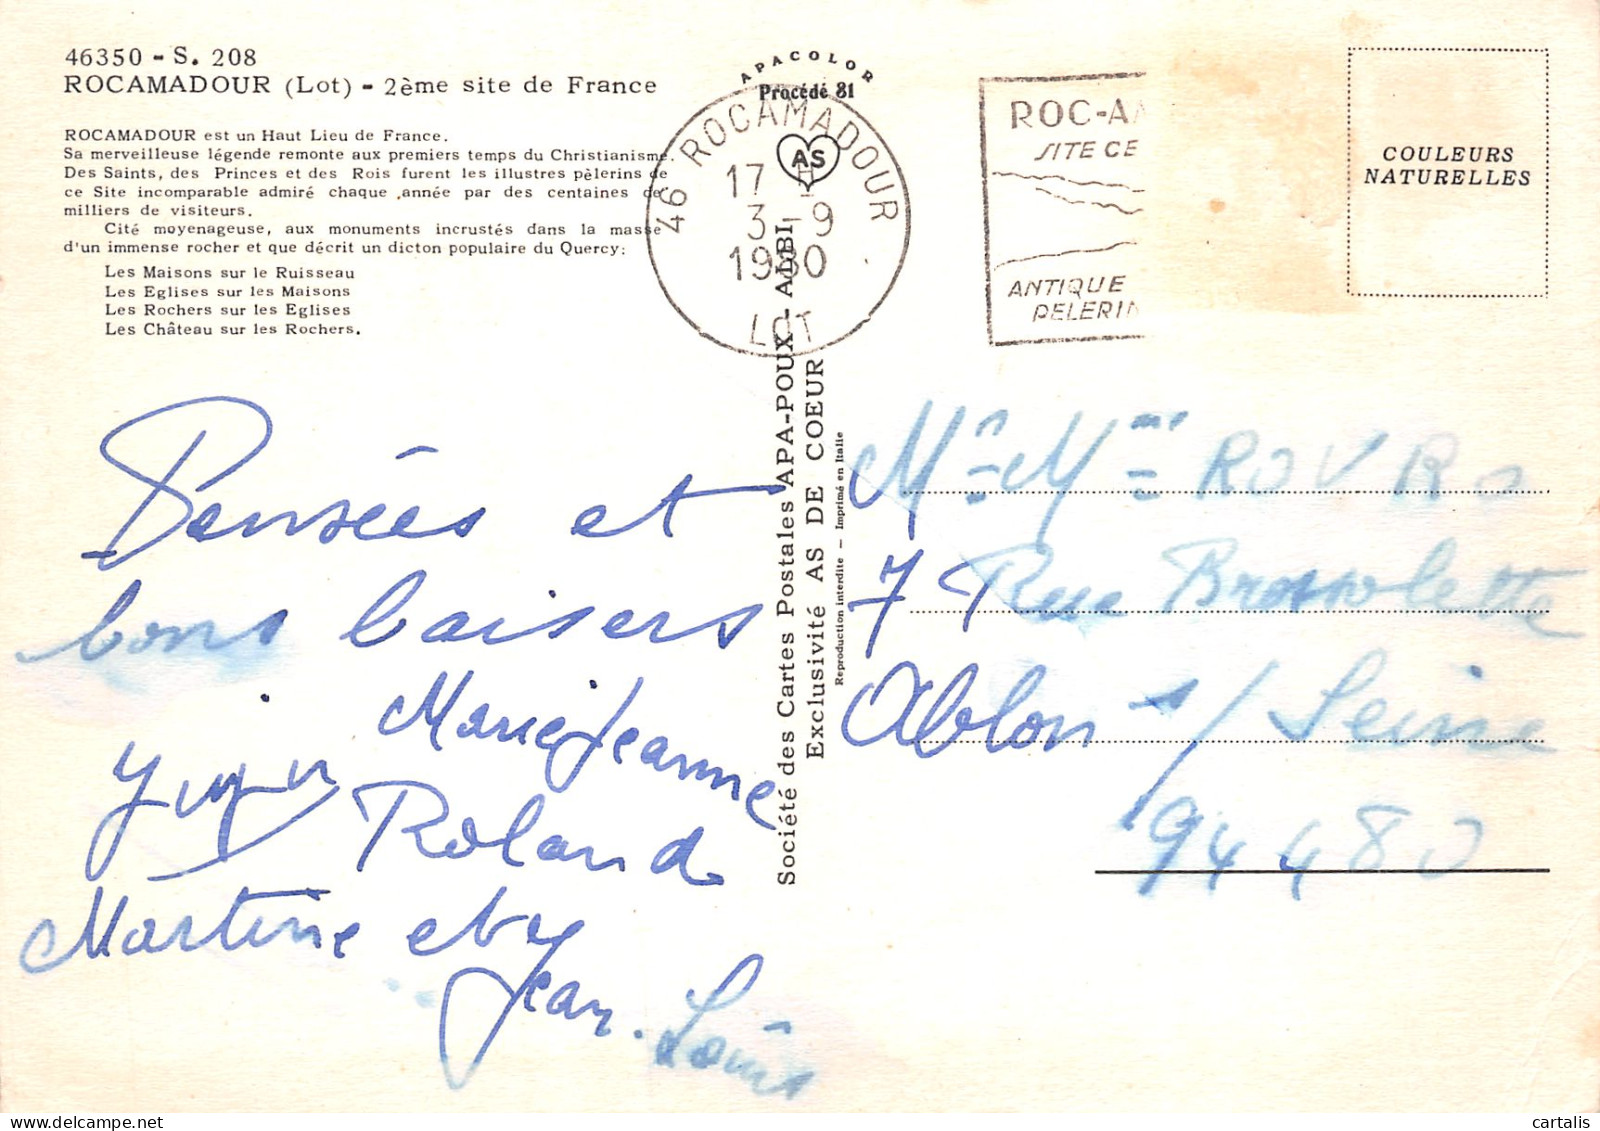 46350 - S. 208
ROCAMADOUR (Lot) - 2ème site de France
ROCAMADOUR est un Haut Lieu de France.
Sa merveilleuse légende remonte aux premiers temps du Christianisme.
Des Saints, des Princes et des Rois furent les illustres pèlerins de
ce Site incomparable admiré chaque année par des centaines de
milliers de visiteurs.
Cité moyenageuse, aux monuments incrustés dans la masse
d'un immense rocher et que décrit un dicton populaire du Quercy:
Les Maisons sur le Ruisseau
Les Eglises sur les Maisons
Les Rochers sur les Eglises
Les Château sur les Rochers.
APACOLOR
Procédé 81
AS
46 ROCAMADOUR
17 H
3 - 9
1980
LOT
ROC-A
SITE CE
ANTIQUE
PELERIN
COULEURS
NATURELLES
Société des Cartes Postales APA-POUX - ALBI -
Exclusivité AS DE COEUR
Reproduction interdite - Imprimé en Italie
Pensées et
bons baisers
Marie Jeanne
Roland
Martine et
Jean. Louis
Mr Mme ROUVRO
7 Rue Brossolette
Ablon s/ Seine
94480
cartalis